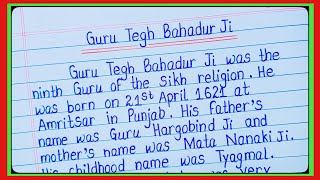 Guru Tegh Bahadur Ji
Guru Tegh Bahadur Ji was the
ninth Guru of the Sikh religion. He
was born on 21st April 1621 at
Amritsar in Punjab. His Father's
name was Guru Hargobind Ji and
mother's name was Mata Nanaki Ji.
His childhood name was Tyagmal.
very